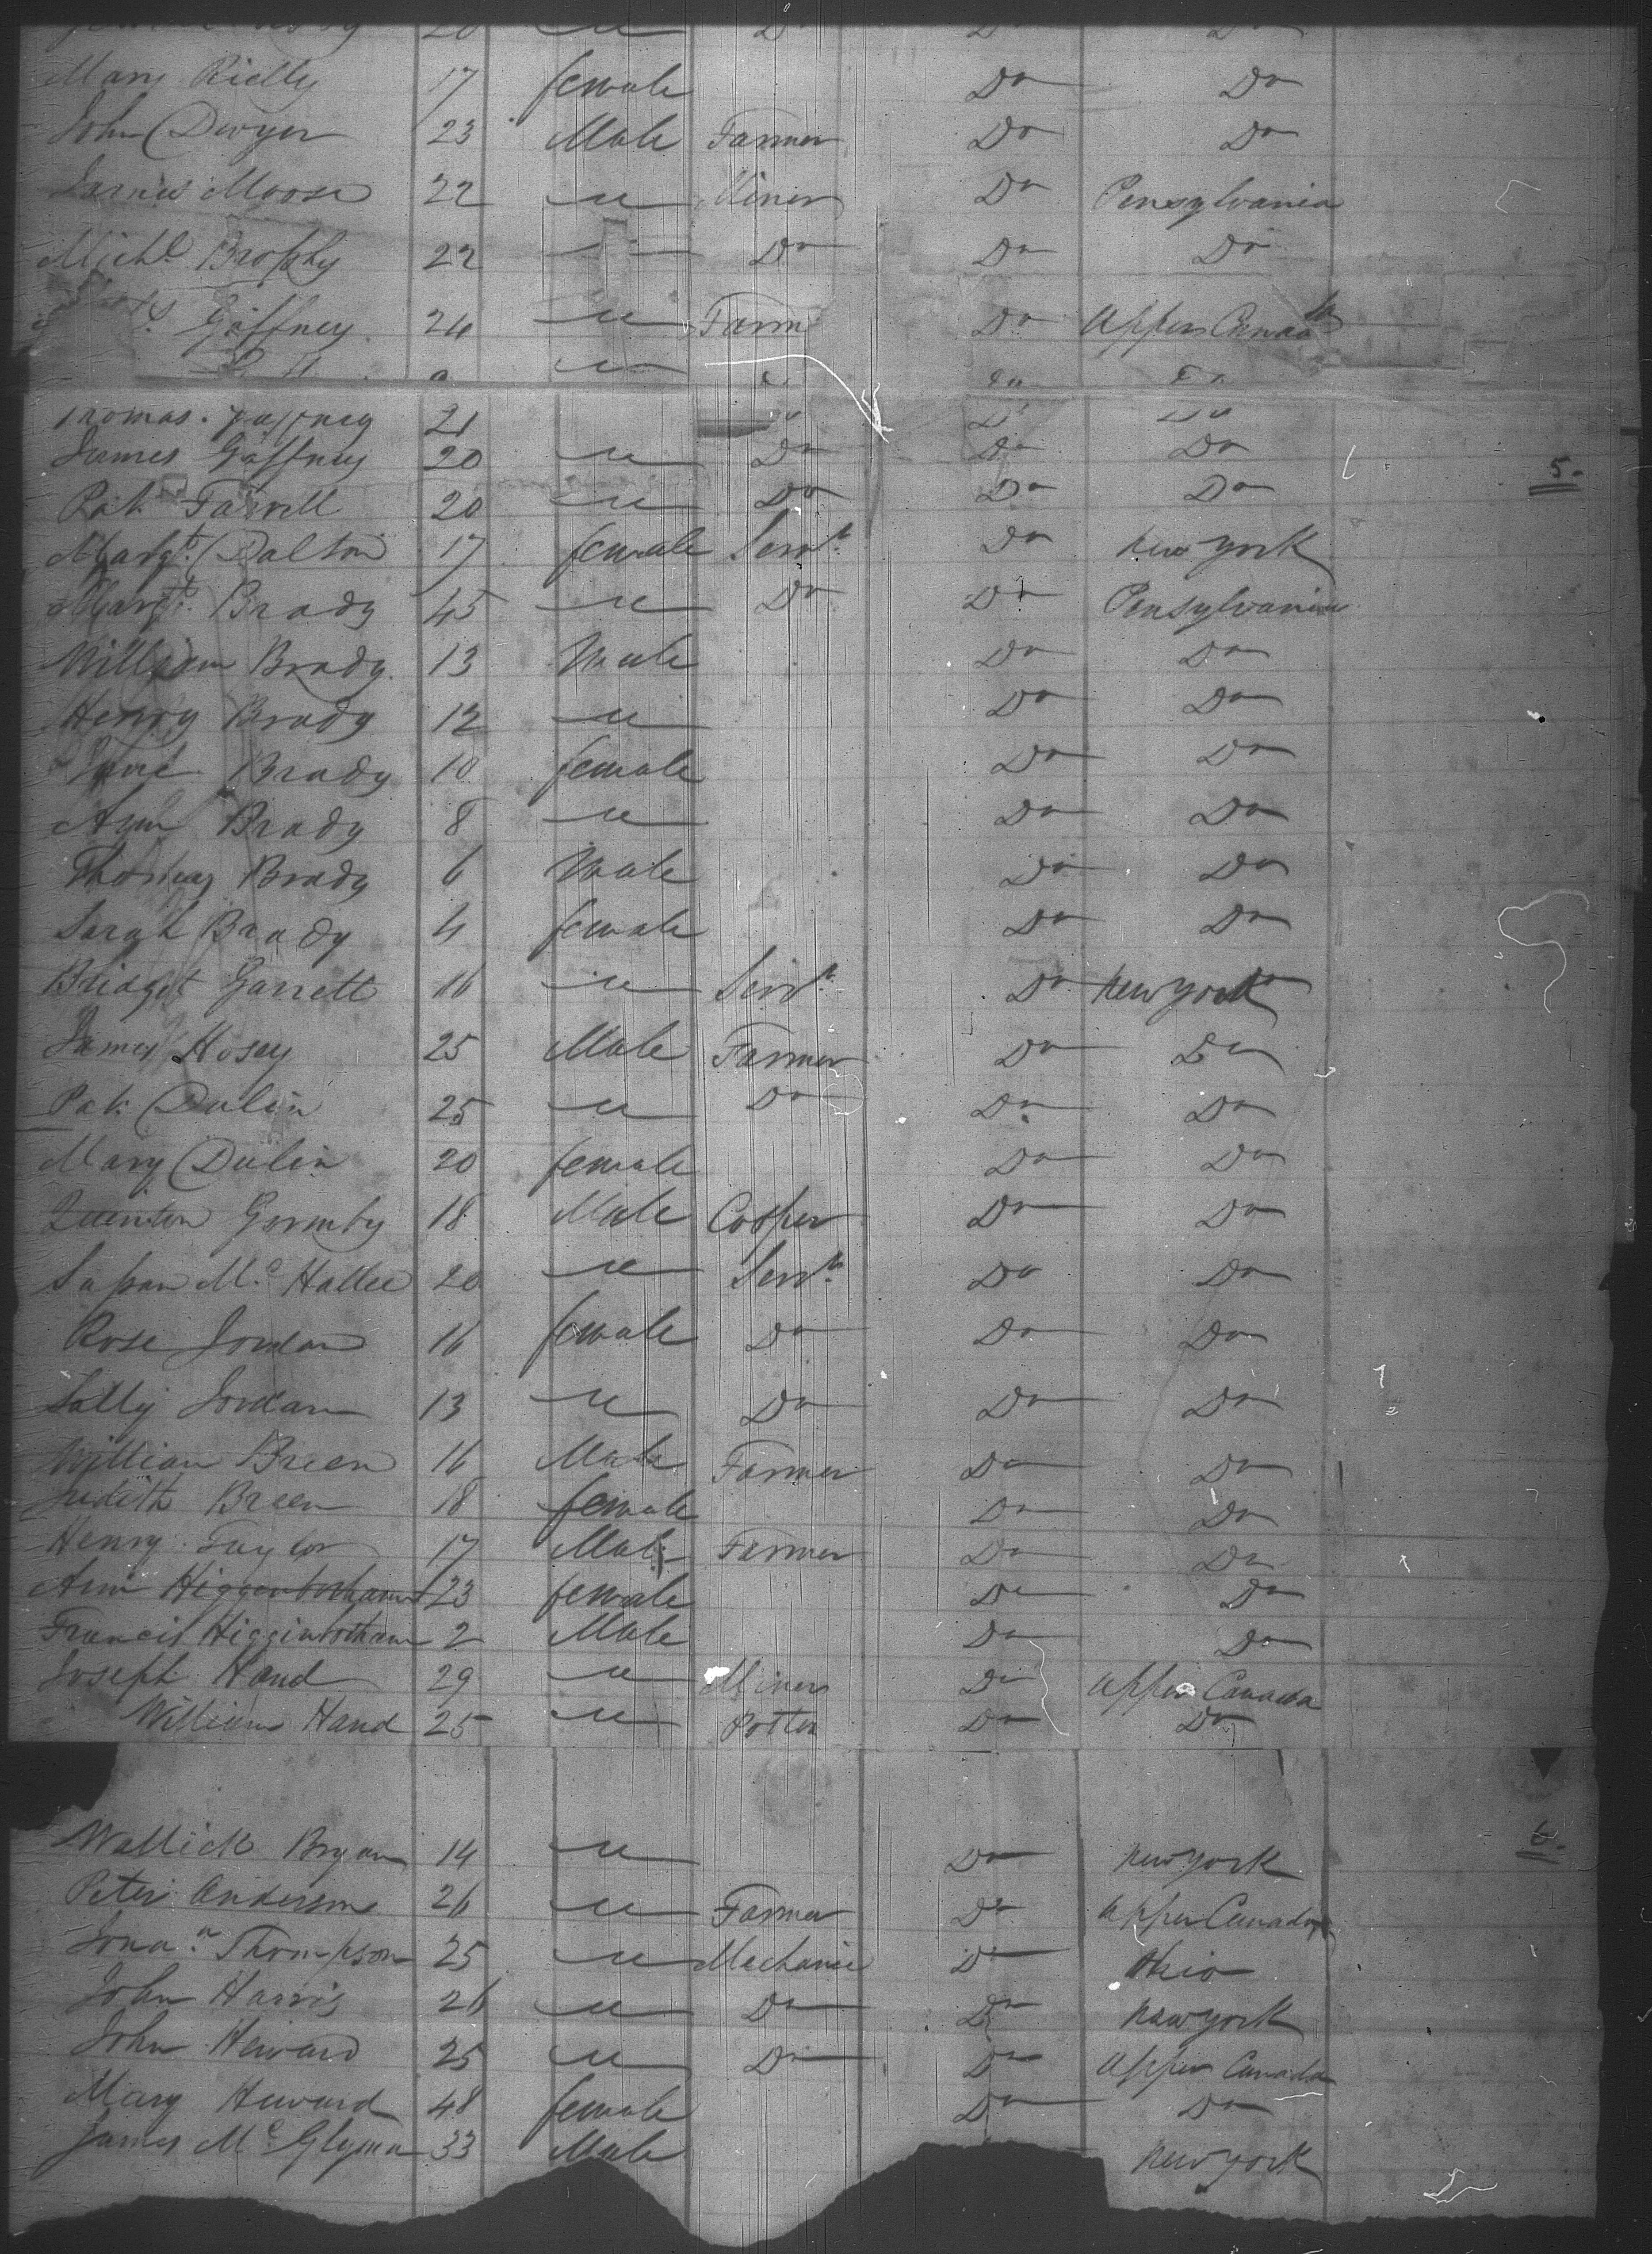 20 " Do Do Do
Mary Rielly 17 female Do Do
John Dwyer 23 Male Farmer Do Do
James Moose 22 " Miner Do Pensylvania
Michl. Brophy 22 " Do Do Do
Gaffney 24 " Farm Do Upper Canada
Thomas Gaffney 21 Do Do Do
James Gaffney 20 " Do Do Do
5.
Pat. Farrell 20 " Do Do Do
Margt. Dalton 17 female Servt. Do New York
Margt. Brady 45 " Do Do Pensylvania
William Brady 13 Male Do Do
Henry Brady 12 " Do Do
Jane Brady 10 female Do Do
Ann Brady 8 " Do Do
Thomas Brady 6 Male Do Do
Sarah Brady 4 female Do Do
Bridget Garrett 16 " Servt. Do New York
James Hosey 25 Male Farmer Do Do
Pat. Dulin 25 " Do Do Do
Mary Dulin 20 female Do Do
Quinton Gormby 18 Male Cooper Do Do
Susan Mc. Hallee 20 " Servt. Do Do
Rose Jordan 16 female Do Do Do
Sally Jordan 13 " Do Do Do
William Breen 16 Male Farmer Do Do
Judith Breen 18 female Do Do
Henry Taylor 17 Male Farmer Do Do
Ann Higginbotham 23 female Do Do
Francis Higginbotham 2 Male Do Do
Joseph Hand 29 " Miner Do Upper Canada
William Hand 25 " Potter Do Do
6.
Wallick Bryan 14 " Do New York
Peter Anderson 26 " Farmer Do Upper Canada
Jonan. Thompson 25 " Mechanic Do Ohio
John Harris 26 " Do Do New York
John Heward 25 " Do Do Upper Canada
Mary Heward 48 female Do Do
James Mc. Glynn 33 Male New York